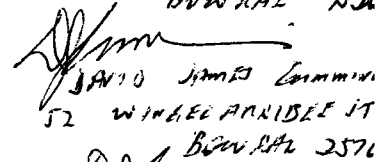 BOWRAL NSW
DAVID JAMES
52 WINGECARRIBEE ST
BOWRAL 2576